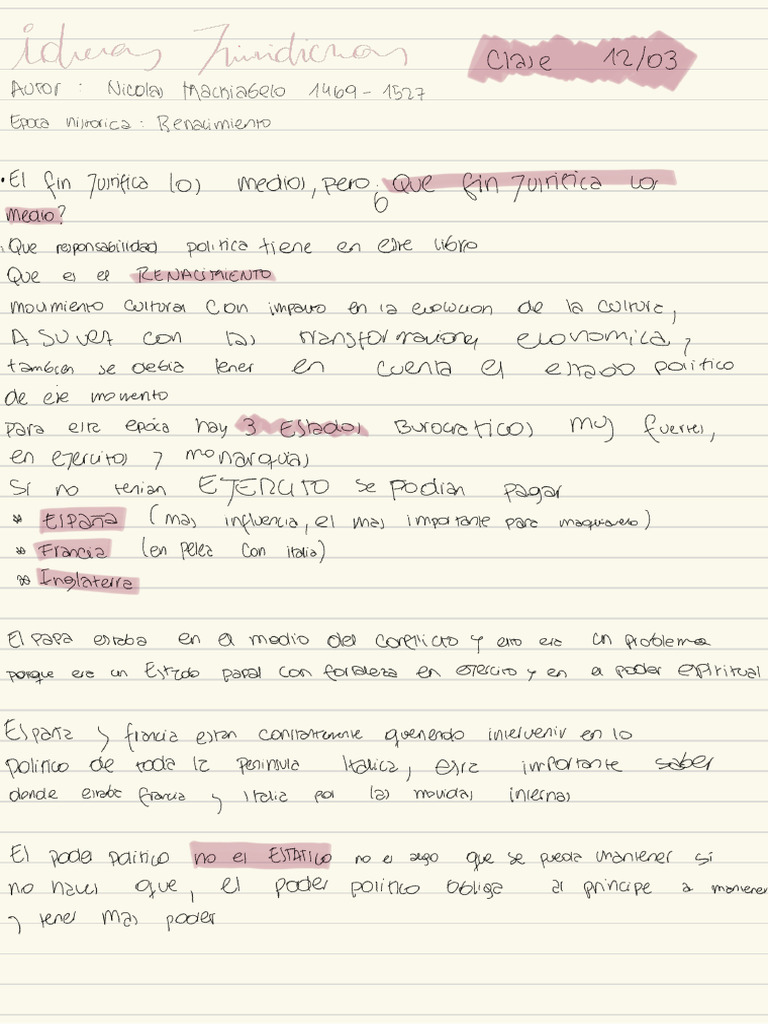 Ideas Juridicas
Clase 12/03
Autor : Nicolas Machiabelo 1469 - 1527
Epoca historica : Renacimiento
• El fin Justifica los medios, pero ¿ Que fin Justifica los
medio?
Que responsabilidad politica tiene en este libro
Que es el RENACIMIENTO
movimiento cultural con impacto en la evolucion de la cultura,
A su vez con las transformaciones economica,
tambien se debia tener en cuenta el estado politico
de ese momento
para esta epoca hay 3 Estados Burocraticos muy fuertes,
en ejercitos y monarquias
Si no tenian EJERCITO se podian pagar
* España (mas influencia, el mas importante para maquiavelo)
* Francia (en pelea con italia)
* Inglaterra
El papa estaba en el medio del conflicto y esto era un problema
porque era un Estado papal con fortaleza en ejercito y en el poder espiritual
España y francia estan constantemente queriendo intervenir en lo
politico de toda la Peninsula Italica, esra importante saber
donde estaba francia y Italia por las movidas internas
El poder politico no es ESTATICO no es algo que se pueda mantener si
no haces que, el poder politico obliga al principe a mantener
y tener mas poder